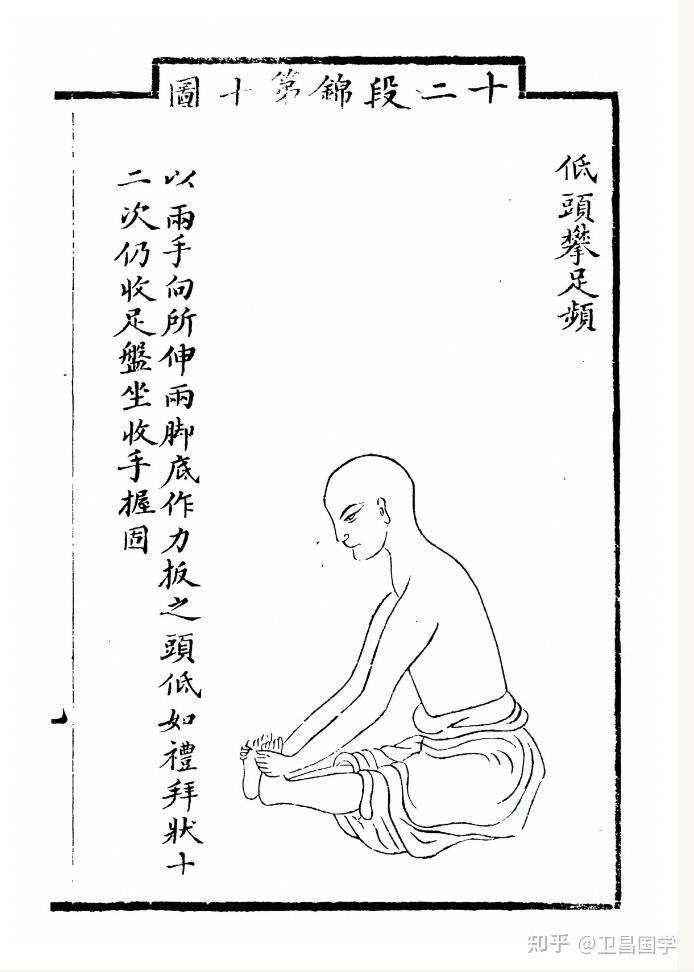 十二段錦第十圖
低頭攀足頻
以兩手向所伸兩脚底作力扳之頭低如禮拜狀十
二次仍收足盤坐收手握固
知乎 @卫昌国学